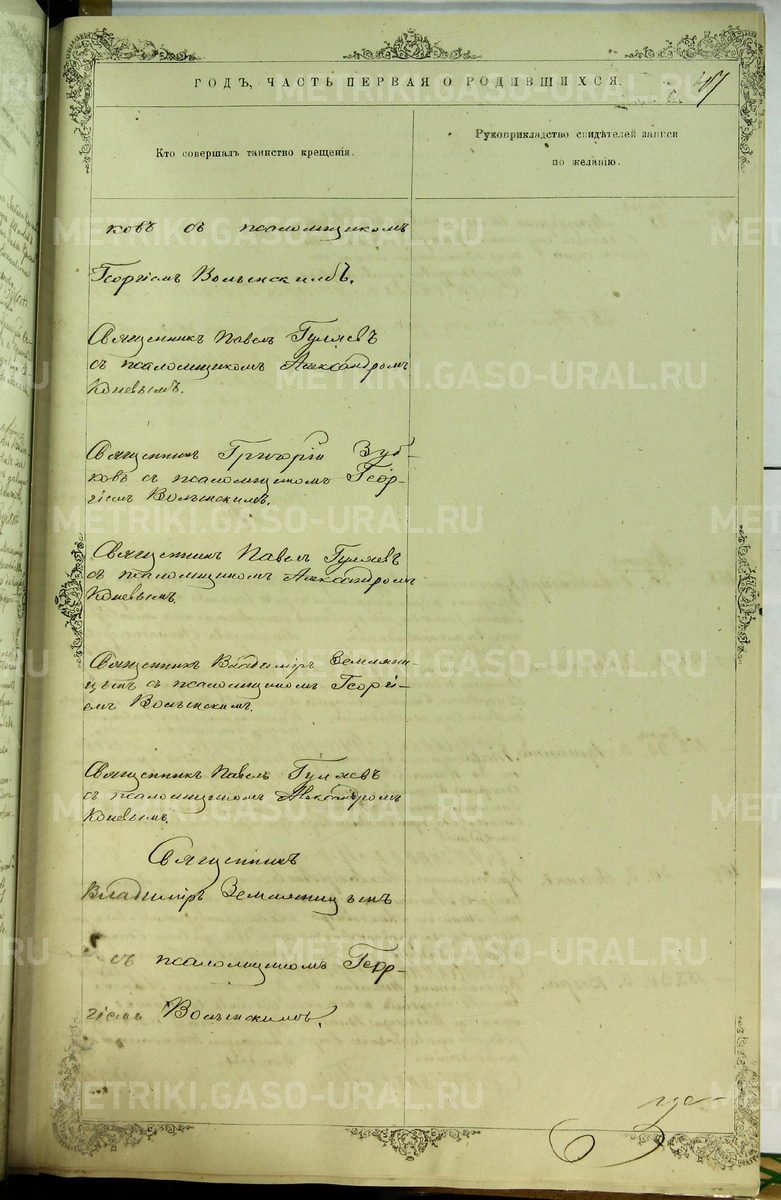 ГОДЪ, ЧАСТЬ ПЕРВАЯ О РОДИВШИХСЯ.
Кто совершалъ таинство крещенія.
Рукоприкладство свидѣтелей записи
по желанію.
ковъ съ псаломщикомъ
Георгіемъ Волынскимъ.
Священникъ Павелъ Гуляевъ
съ псаломщикомъ Александромъ
Коневымъ.
Священникъ Григорій Зуб-
ковъ съ псаломщикомъ Геор-
гіемъ Волынскимъ.
Священникъ Павелъ Гуляевъ
съ псаломщикомъ Александромъ
Коневымъ.
Священникъ Владиміръ Земляни-
цынъ съ псаломщикомъ Георгі-
емъ Волынскимъ.
Священникъ Павелъ Гуляевъ
съ псаломщикомъ Александромъ
Коневымъ.
Священникъ
Владиміръ Земляницынъ
съ псаломщикомъ Геор-
гіемъ Волынскимъ.
METRIKI.GASO-URAL.RU